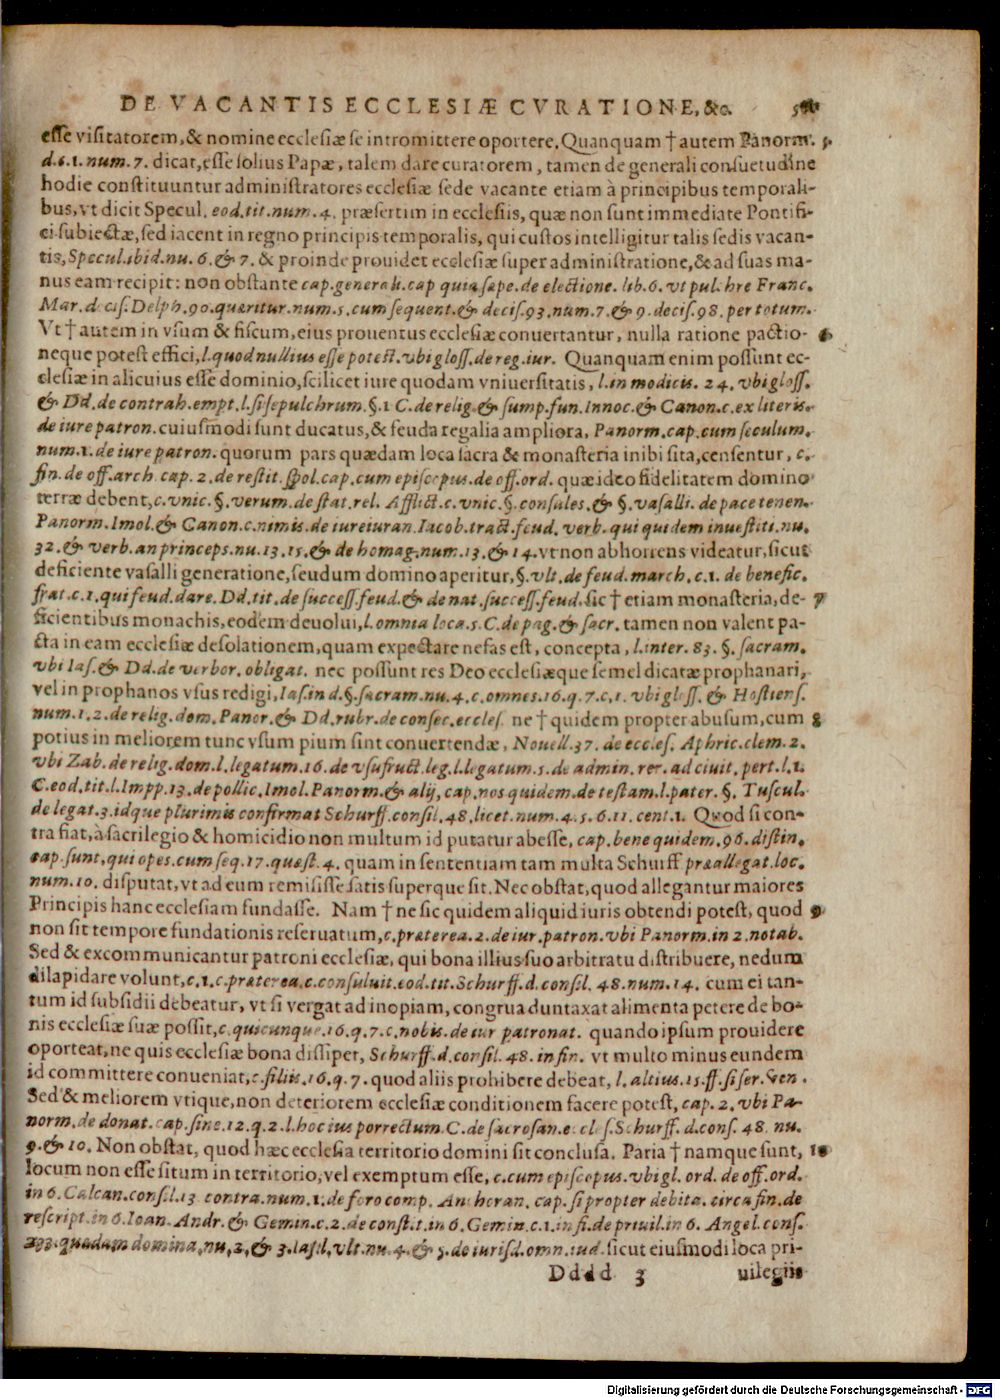 DE VACANTIS ECCLESIÆ CVRATIONE, &c.
esse visitatorem, & nomine ecclesiæ se intromittere oportere, Quanquam † autem Panorm.
d. c. 1. num. 7. dicat, esse solius Papæ, talem dare curatorem, tamen de generali consuetudine
hodie constituuntur administratores ecclesiæ sede vacante etiam à principibus temporali-
bus, vt dicit Specul. eod. tit. num. 4. præsertim in ecclesiis, quæ non sunt immediate Pontifi-
ci subiectæ, sed iacent in regno principis temporalis, qui custos intelligitur talis sedis vacan-
tis, Specul. ibid. nu. 6. & 7. & proinde prouidet ecclesiæ super administratione, & ad suas ma-
nus eam recipit: non obstante cap. generali. cap quia sæpe. de electione. lib. 6. vt pulchre Franc.
Mar. decis. Delph. 90. quæritur num. 5. cum sequent. & decis. 93. num. 7. & 9. decis. 98. per totum.
Vt † autem in vsum & fiscum, eius prouentus ecclesiæ conuertantur, nulla ratione pactio- 6
neque potest effici, l. quod nullius esse potest. vbi gloss. de reg. iur. Quanquam enim possunt ec-
clesiæ in alicuius esse dominio, scilicet iure quodam vniuersitatis, l. in modicis. 24. vbi gloss.
& Dd. de contrah. empt. l. si sepulchrum. §. 1 C. de relig. & sump. fun. Innoc. & Canon. c. ex literis.
de iure patron. cuiusmodi sunt ducatus, & feuda regalia ampliora, Panorm. cap. cum seculum.
num. 1. de iure patron. quorum pars quædam loca sacra & monasteria inibi sita, censentur, c.
fin. de off. arch. cap. 2. de restit. spol. cap. cum episcopus. de off. ord. quæ ideo fidelitatem domino
terræ debent, c. vnic. §. verum. de stat. rel. Afflict. c. vnic. §. consules. & §. vasalli. de pace tenen.
Panorm. Imol. & Canon. c. nimis. de iureiuran. Iacob. tract. feud. verb. qui quidem inuestiti. nu.
32. & verb. an princeps. nu. 13. 15. & de homag. num. 13. & 14. vt non abhorrens videatur, sicut
deficiente vasalli generatione, feudum domino aperitur, §. vlt. de feud. march. c. 1. de benefic.
frat. c. 1. qui feud. dare. Dd. tit. de success. feud. & de nat. success. feud. sic † etiam monasteria, de- 7
ficientibus monachis, eodem deuolui, l. omnia loca. 5. C. de pag. & sacr. tamen non valent pa-
cta in eam ecclesiæ desolationem, quam expectare nefas est, concepta, l. inter. 83. §. sacram.
vbi Ias. & Dd. de verbor. obligat. nec possunt res Deo ecclesiæque semel dicatæ prophanari,
vel in prophanos vsus redigi, Ias. in d. §. sacram. nu. 4. c. omnes. 16. q. 7. c. 1. vbi gloss. & Hostiens.
num. 1. 2. de relig. dom. Panor. & Dd. rubr. de consec. eccles. ne † quidem propter abusum, cum 8
potius in meliorem tunc vsum pium sint conuertendæ, Nouell. 37. de eccles. Aphric. clem. 2.
vbi Zab. de relig. dom. l. legatum. 16. de vsufruct. leg. l. legatum. 5. de admin. rer. ad ciuit. pert. l. 1.
C. eod. tit. l. Impp. 13. de pollic. Imol. Panorm. & alij, cap. nos quidem. de testam. l. pater. §. Tuscul.
de legat. 3. idque plurimis confirmat Schurff. consil. 48. licet. num. 4. 5. 6. 11. cent. 1. Quod si con-
tra fiat, à sacrilegio & homicidio non multum id putatur abesse, cap. bene quidem. 96. distin.
cap. sunt, qui opes. cum seq. 17. quæst. 4. quam in sententiam tam multa Schurff præallegat. loc.
num. 10. disputat, vt ad eum remisisse satis superque sit. Nec obstat, quod allegantur maiores
Principis hanc ecclesiam fundasse. Nam † ne sic quidem aliquid iuris obtendi potest, quod 9
non sit tempore fundationis reseruatum, c. præterea. 2. de iur. patron. vbi Panorm. in 2. notab.
Sed & excommunicantur patroni ecclesiæ, qui bona illius suo arbitratu distribuere, nedum
dilapidare volunt, c. 1. c. præterea. c. consuluit. eod. tit. Schurff. d. consil. 48. num. 14. cum ei tan-
tum id subsidii debeatur, vt si vergat ad inopiam, congrua duntaxat alimenta petere de bo-
nis ecclesiæ suæ possit, c. quicunque. 16. q. 7. c. nobis. de iur patronat. quando ipsum prouidere
oporteat, ne quis ecclesiæ bona dissipet, Schurff. d. consil. 48. in fin. vt multo minus eundem
id committere conueniat, c. filiis. 16. q. 7. quod aliis prohibere debeat, l. altius. 15. ff. si ser. ven.
Sed & meliorem vtique, non deteriorem ecclesiæ conditionem facere potest, cap. 2. vbi Pa-
norm. de donat. cap. sine. 12. q. 2. l. hoc ius porrectum. C. de sacrosan. eccles. Schurff. d. cons. 48. nu.
9. & 10. Non obstat, quod hæc ecclesia territorio domini sit conclusa. Paria † namque sunt, 10
locum non esse situm in territorio, vel exemptum esse, c. cum episcopus. vbi gl. ord. de off. ord.
in 6. Calcan. consil. 13 contra. num. 1. de foro comp. Ancheran. cap. si propter debita. circa fin. de
rescript. in 6. Ioan. Andr. & Gemin. c. 2. de constit. in 6. Gemin. c. 1. in fi. de priuil. in 6. Angel. cons.
quædam domina, nu. 2. & 3. Ias. l. vlt. nu. 4. & 5. de iurisd. omn. iud. sicut eiusmodi loca pri-
Dddd 3 uilegiis
Digitalisierung gefördert durch die Deutsche Forschungsgemeinschaft - DFG